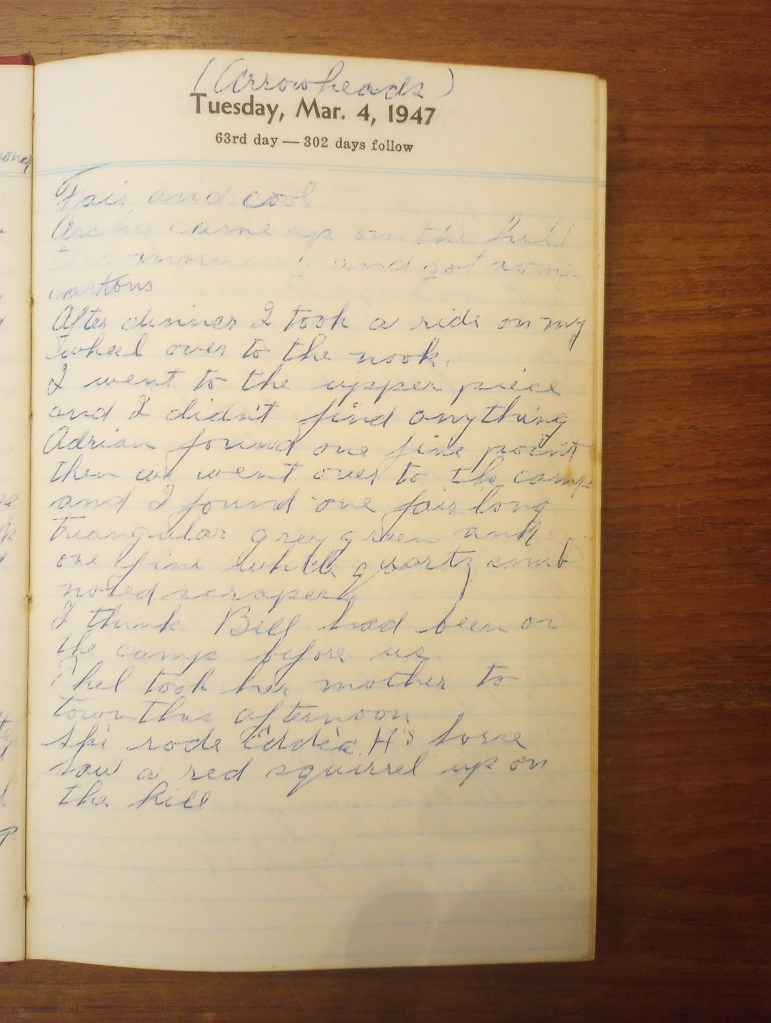 (Arrowheads)
Tuesday, Mar. 4, 1947
63rd day — 302 days follow
Fair and cool
Archie came up on the hill
this morning and got some
cartons
After dinner I took a ride on my
wheel over to the nook.
I went to the upper piece
and I didn't find anything
Adrian found one fine point
then we went over to the camp
and I found one fair long
triangular grey green and
one fine white quartz snub
nosed scraper
I think Bill had been on
the camp before us.
Phel took her mother to
town this afternoon
rode Eddie H's horse
Saw a red squirrel up on
the hill